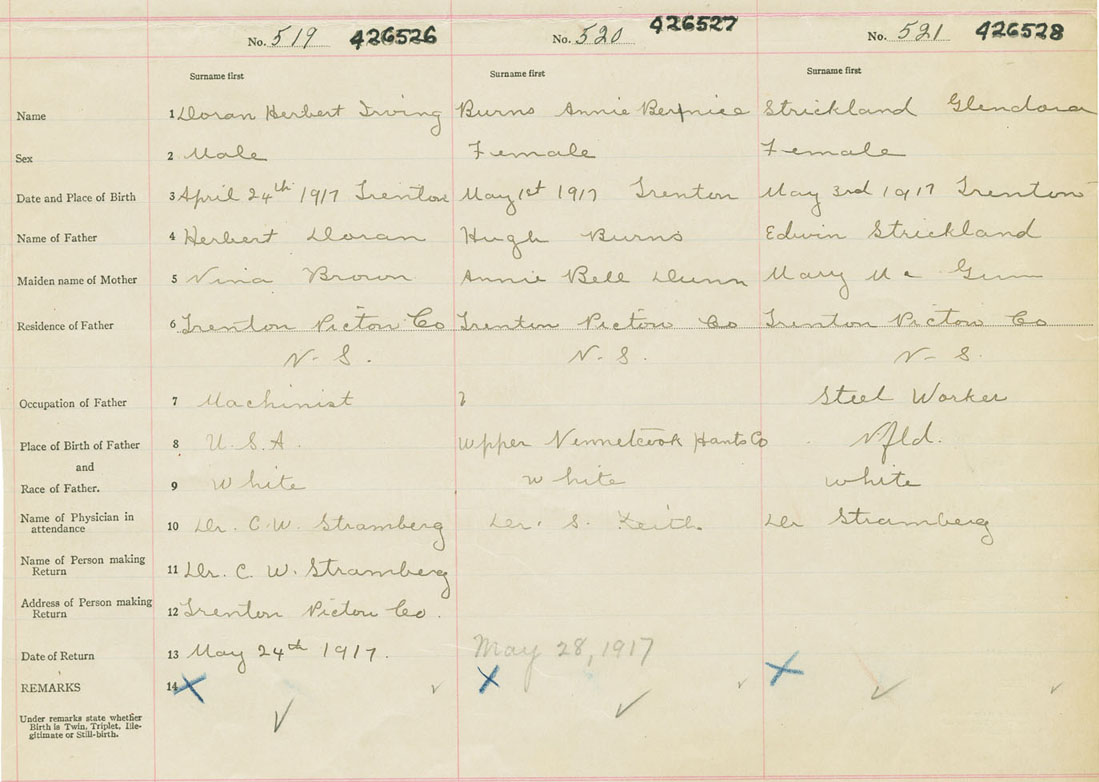 No. 519 426526 No. 520 426527 No. 521 426528
Surname first Surname first Surname first
Name 1 Doran Herbert Irving Burns Annie Bernice Strickland Glendora
Sex 2 Male Female Female
Date and Place of Birth 3 April 24th 1917 Trenton May 1st 1917 Trenton May 3rd 1917 Trenton
Name of Father 4 Herbert Doran Hugh Burns Edwin Strickland
Maiden name of Mother 5 Nina Brown Annie Bell Dunn Mary Mc Gunn
Residence of Father 6 Trenton Pictou Co Trenton Pictou Co Trenton Pictou Co
N. S. N. S. N. S.
Occupation of Father 7 Machinist ? Steel Worker
Place of Birth of Father 8 U.S.A. Upper Hants Co Nfld.
and
Race of Father. 9 White White White
Name of Physician in
attendance 10 Dr. C. W. Stramberg Dr. S. Keith. Dr Stramberg
Name of Person making
Return 11 Dr. C. W. Stramberg
Address of Person making
Return 12 Trenton Pictou Co.
Date of Return 13 May 24th 1917. May 28, 1917
REMARKS 14
Under remarks state whether
Birth is Twin, Triplet, Ille-
gitimate or Still-birth.